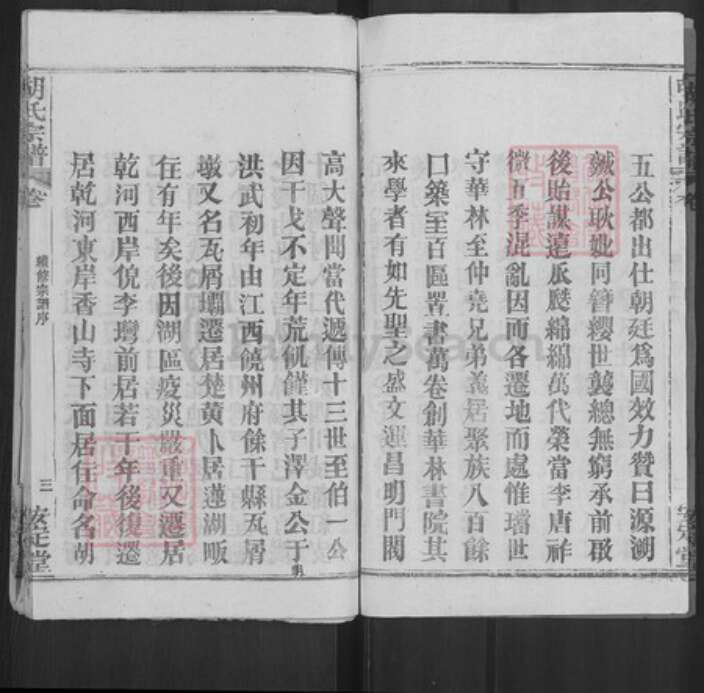 五公都出仕朝廷為國效力贊曰源溯
滅公耿妣同簪纓世襲總無窮承前啟
後貽謀遠瓜瓞綿綿萬代榮當李唐祚
微五季混亂因而各遷地而處惟璿世
守華林至仲堯兄弟義居聚族八百餘
口築室百區置書萬卷創華林書院其
來學者有如先聖之盛文運昌明門閥
高大聲聞當代遞傳十三世至伯一公
因干戈不定年荒飢饉其子澤金公于明
洪武初年由江西饒州府餘干縣瓦屑
墩又名瓦屑壩遷居楚黃卜居蓮湖畈
住有年矣後因湖區疫災嚴重又遷居
乾河西岸倪李灣前居若干年後復遷
居乾河東岸香山寺下面居住命名胡
胡氏宗譜
卷
續修宗譜序
三
安定堂